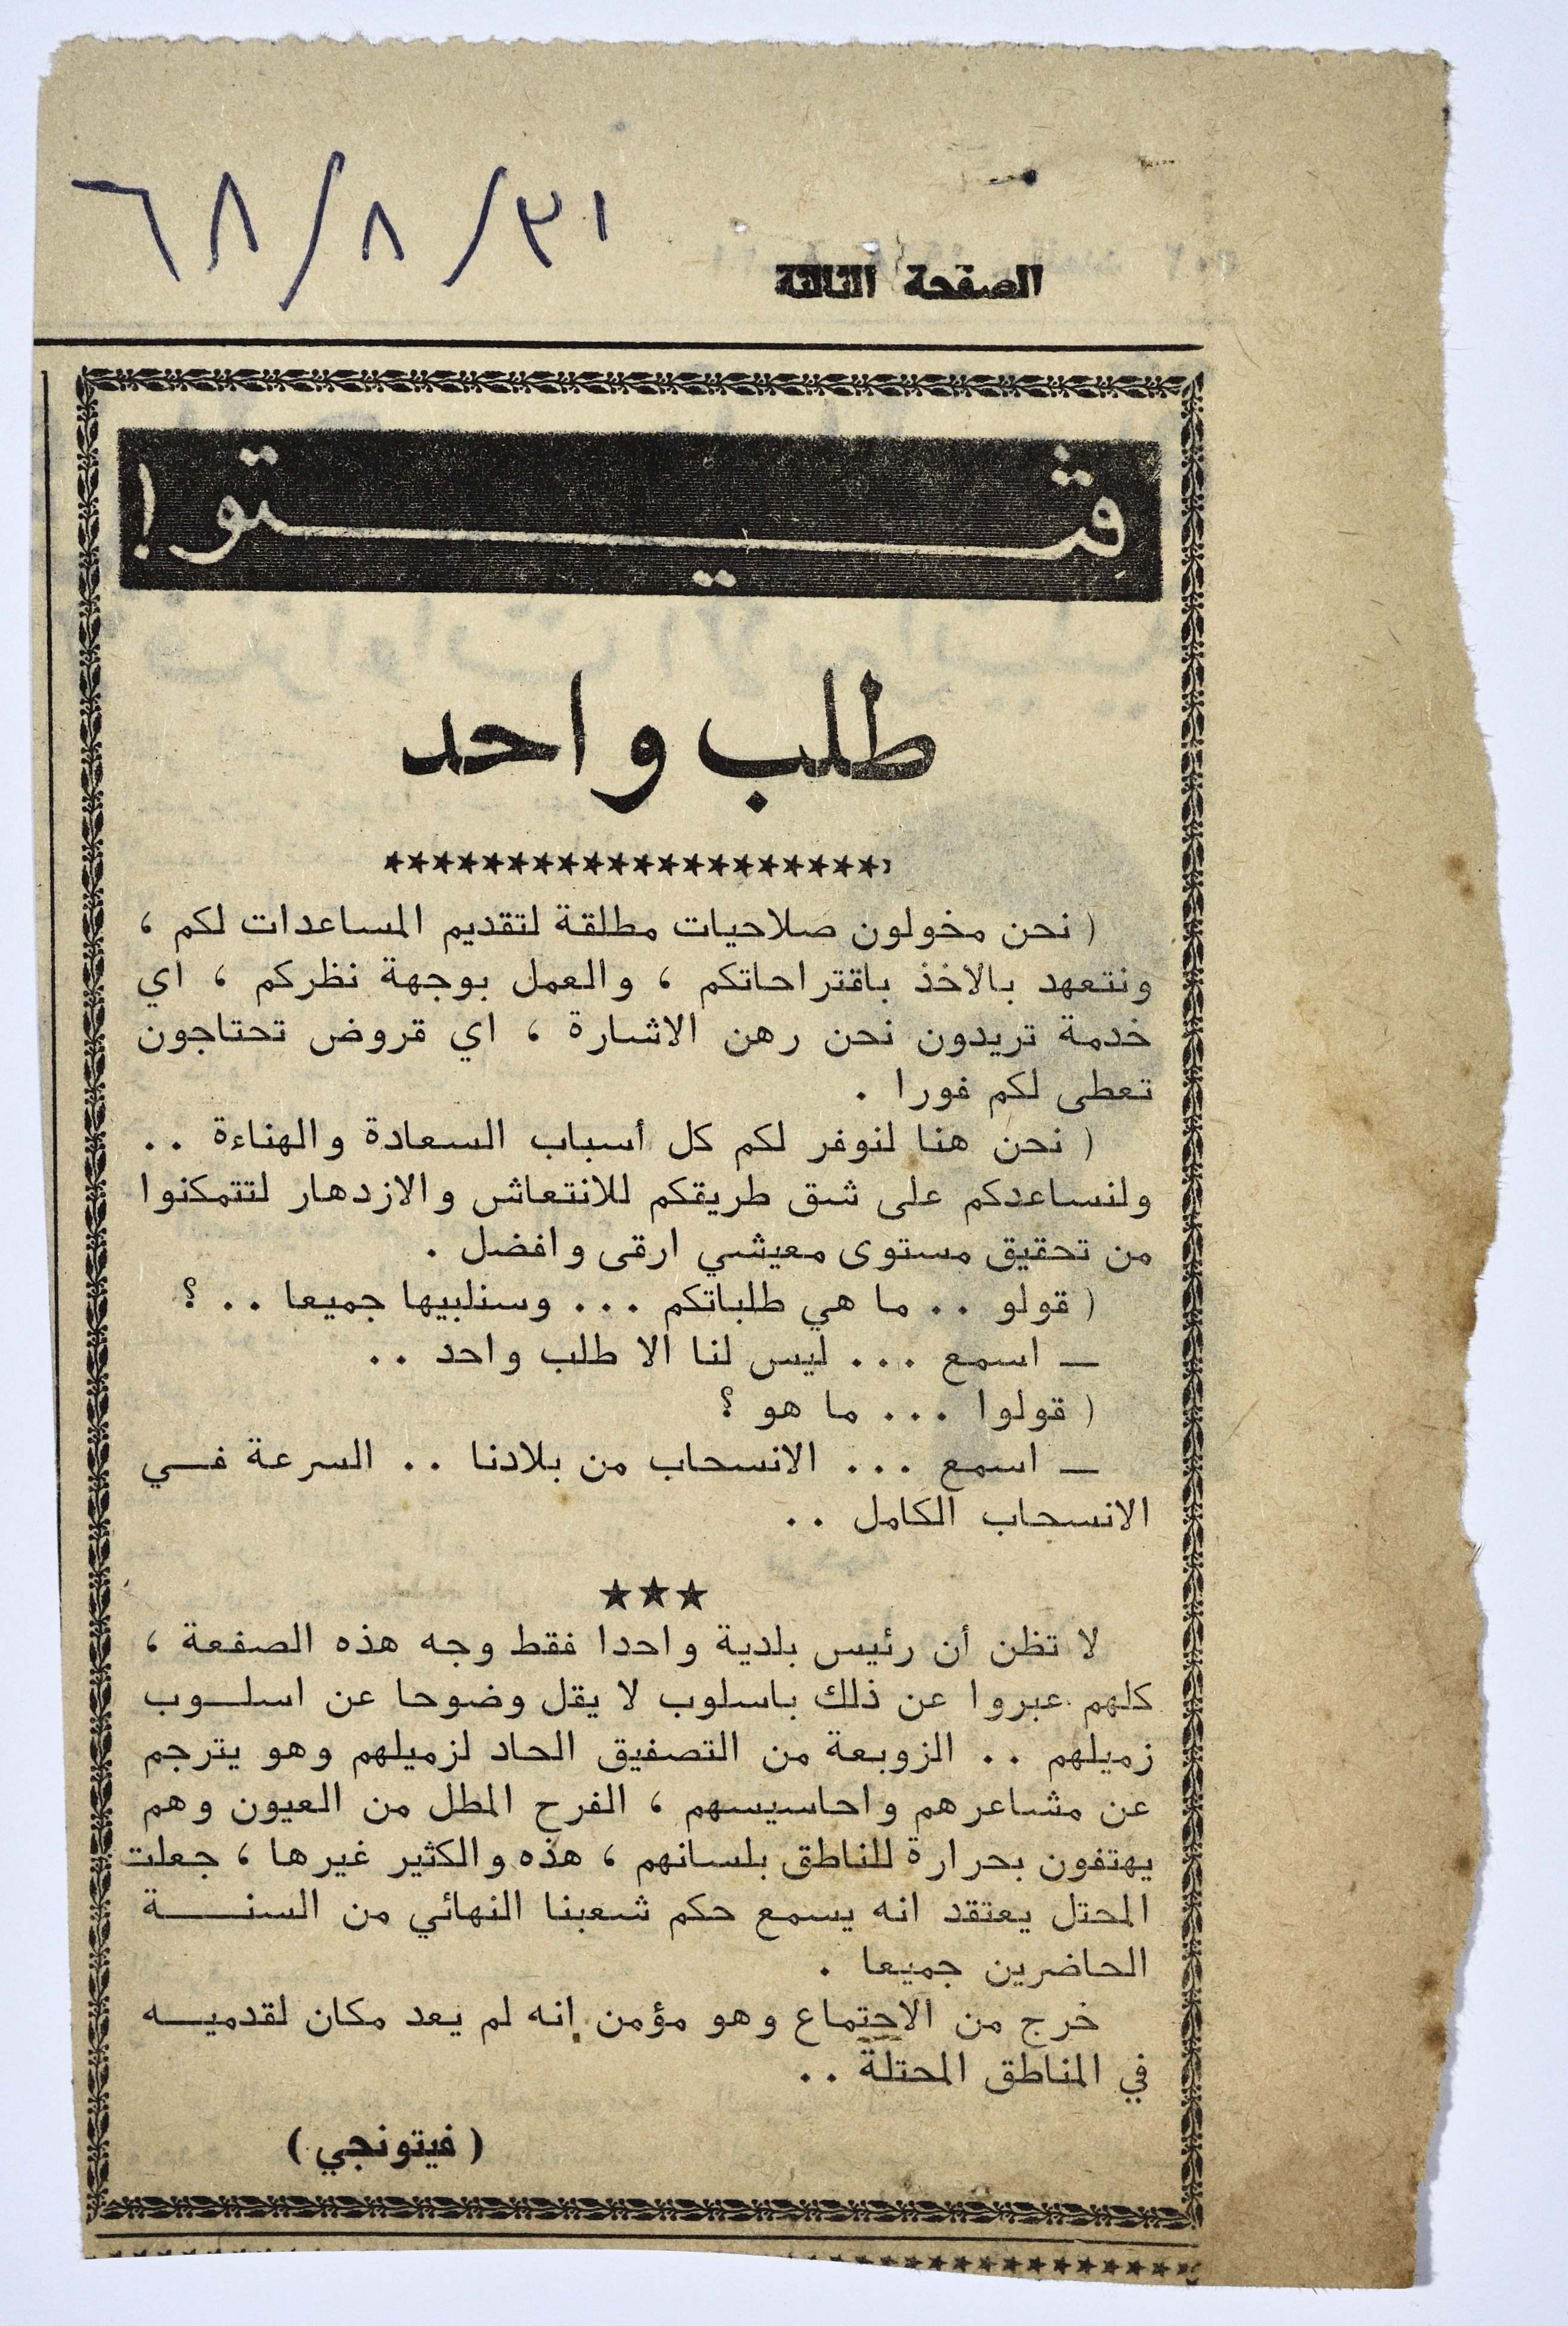 ٣١/٨/٦٨
الصفحة الثالثة
ڤيتو !
طلب واحد
( نحن مخولون صلاحيات مطلقة لتقديم المساعدات لكم ،
ونتعهد بالاخذ باقتراحاتكم ، والعمل بوجهة نظركم ، اي
خدمة تريدون نحن رهن الاشارة ، اي قروض تحتاجون
تعطى لكم فورا .
( نحن هنا لنوفر لكم كل أسباب السعادة والهناءة ..
ولنساعدكم على شق طريقكم للانتعاش والازدهار لتتمكنوا
من تحقيق مستوى معيشي ارقى وافضل .
( قولو .. ما هي طلباتكم ... وسنلبيها جميعا .. ؟
ــ اسمع ... ليس لنا الا طلب واحد ..
( قولوا ... ما هو ؟
ــ اسمع ... الانسحاب من بلادنا .. السرعة فــي
الانسحاب الكامل ..
★★★
لا تظن أن رئيس بلدية واحدا فقط وجه هذه الصفعة ،
كلهم عبروا عن ذلك باسلوب لا يقل وضوحا عن اسلــوب
زميلهم .. الزوبعة من التصفيق الحاد لزميلهم وهو يترجم
عن مشاعرهم واحاسيسهم ، الفرح المطل من العيون وهم
يهتفون بحرارة للناطق بلسانهم ، هذه والكثير غيرها ، جعلت
المحتل يعتقد انه يسمع حكم شعبنا النهائي من السنــــة
الحاضرين جميعا .
خرج من الاجتماع وهو مؤمن انه لم يعد مكان لقدميــه
في المناطق المحتلة ..
( فيتونجي )